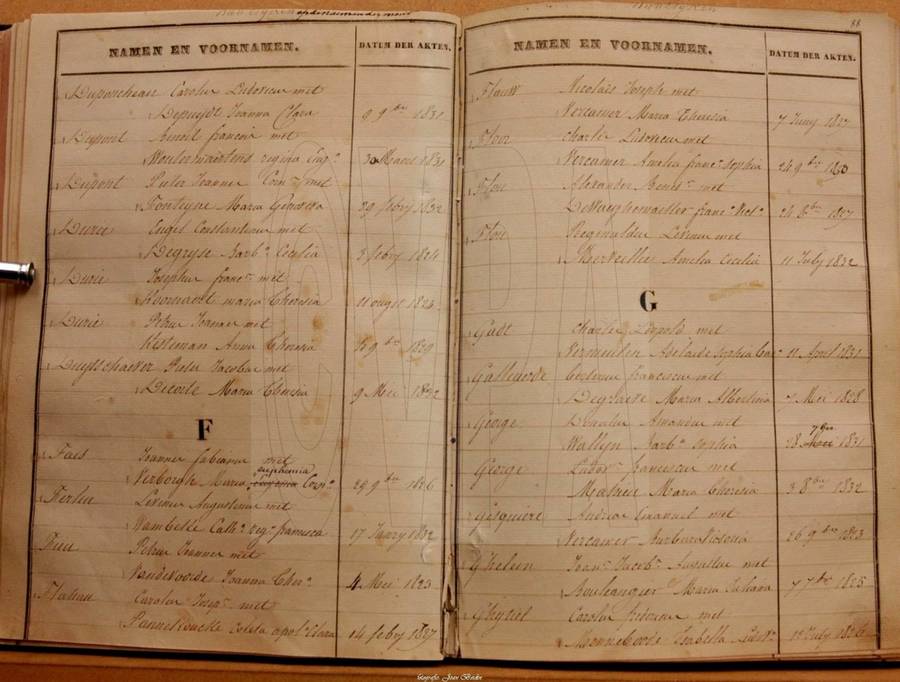 NAMEN EN VOORNAMEN. DATUM DER AKTEN.
Duponcheau Carolus Ludovicus met
Depuydt Joanna Clara 9 9bre 1831
Dupont Benoit francois met
Woutermaertens regina Eug. 30 Maart 1831
Dupont Pieter Joannes Corn. met
Fonteyne Maria Genoveva 29 febry 1832
Durie Engel Constantinus met
Degryse Barb. Cecilia 5 febry 1824
Durie Josephus franc. met
Maria Theresia 11 ougst 1823
Durie Petrus Joannes met
Kesteman Anna Theresia 15 9bre 1829
Duytschaever Pieter Jacobus met
Decorte Maria Theresia 9 Mei 1832
F
Faes Joannes fabianus met
Verborgh Maria euphemia Corn.
29 9bre 1826
Livinus Augustinus met
Wambeke Cath. reg. francisca 17 Janry 1832
Petrus Joannes met
Vandevoorde Joanna Ther. 4 Mei 1823
Carolus Josep. met
Pannekoucke Coleta apol. Clara 14 febry 1827
88
NAMEN EN VOORNAMEN. DATUM DER AKTEN.
Flauw Nicolais Joseph met
Vercamer Maria Theresia 7 Juny 1827
Floor Charle Ludovicus met
Vercamer Amelia franc. Sophia 24 9bre 1830
Flou Alexander met
franc. Vict. 24 8bre 1827
Flou Segenaldus Livinus met
Meerveillie Amelia Cecilia 11 July 1832
G
Gadt Charle Léopold met
Vermeulen Adelaide Sophia 11 April 1831
Gallewarde franciscus met
Degraeve Maria Albertina 7 Mei 1828
George Donatus Amandus met
Wallyn Barb. Sophia 28 7bre 1831
George Ludov. franciscus met
Mahieu Maria Theresia 3 8bre 1832
Gesquiere Andreas Emanuel met
Vercamer Barbara Rosalia 26 9bre 1823
Ghelein Joan. Jacob. Augustus met
Boulangier Maria Juliana 7 7bre 1825
Gheysel Carolus fredericus met
Monnekoore Isabella Ludov. 15 July 1826
fotografie: Jean Bader